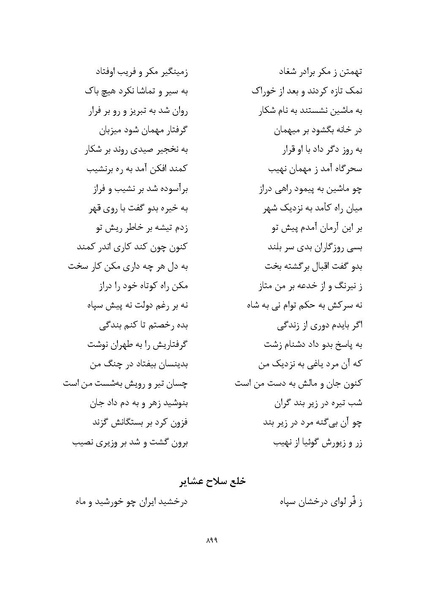 تهمتن ز مکر برادر شغاد زمینگیر مکر و فریب اوفتاد
نمک تازه کردند و بعد از خوراک به سیر و تماشا نکرد هیچ باک
به ماشین نشستند به نام شکار روان شد به تبریز و رو بر فرار
در خانه بگشود بر میهمان گرفتار مهمان شود میزبان
به روز دگر داد با او قرار به نخجیر صیدی روند بر شکار
سحرگاه آمد ز مهمان نهیب کمند افکن آمد به ره برنشیب
چو ماشین به پیمود راهی دراز برآسوده شد بر نشیب و فراز
میان راه کآمد به نزدیک شهر به خیره بدو گفت با روی قهر
بر این آرمان آمدم پیش تو زدم تیشه بر خاطر ریش تو
بسی روزگاران بدی سر بلند کنون چون کند کاری اندر کمند
بدو گفت اقبال برگشته بخت به دل هر چه داری مکن کار سخت
ز نیرنگ و از خدعه بر من متاز مکن راه کوتاه خود را دراز
نه سرکش به حکم توام نی به شاه نه بر رغم دولت نه پیش سپاه
اگر بایدم دوری از زندگی بده رخصتم تا کنم بندگی
به پاسخ بدو داد دشنام زشت گرفتاریش را به طهران نوشت
که آن مرد یاغی به نزدیک من بدینسان بیفتاد در چنگ من
کنون جان و مالش به دست من است چسان تیر و رویش به‌شست من است
شب تیره در زیر بند گران بنوشید زهر و به دم داد جان
چو آن بی‌گنه مرد در زیر بند فزون کرد بر بستگانش گزند
زر و زیورش گوئیا از نهیب برون گشت و شد بر وزیری نصیب
خلع سلاح عشایر
ز فّر لوای درخشان سپاه درخشید ایران چو خورشید و ماه
۸۹۹